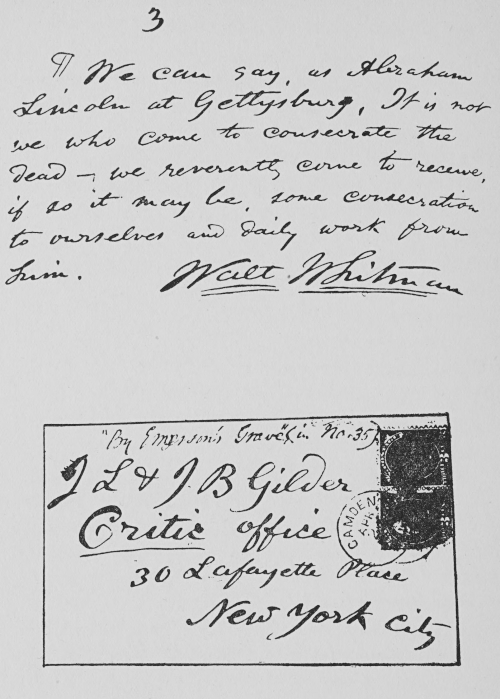 3
¶ We can say, as Abraham
Lincoln at Gettysburg, It is not
we who come to consecrate the
dead — we reverently come to receive,
if so it may be, some consecration
to ourselves and daily work from
him.
Walt Whitman
"By Emerson's Grave" (in No. 35)
J L & J B Gilder
Critic office
30 Lafayette Place
New York City
CAMDEN
APR